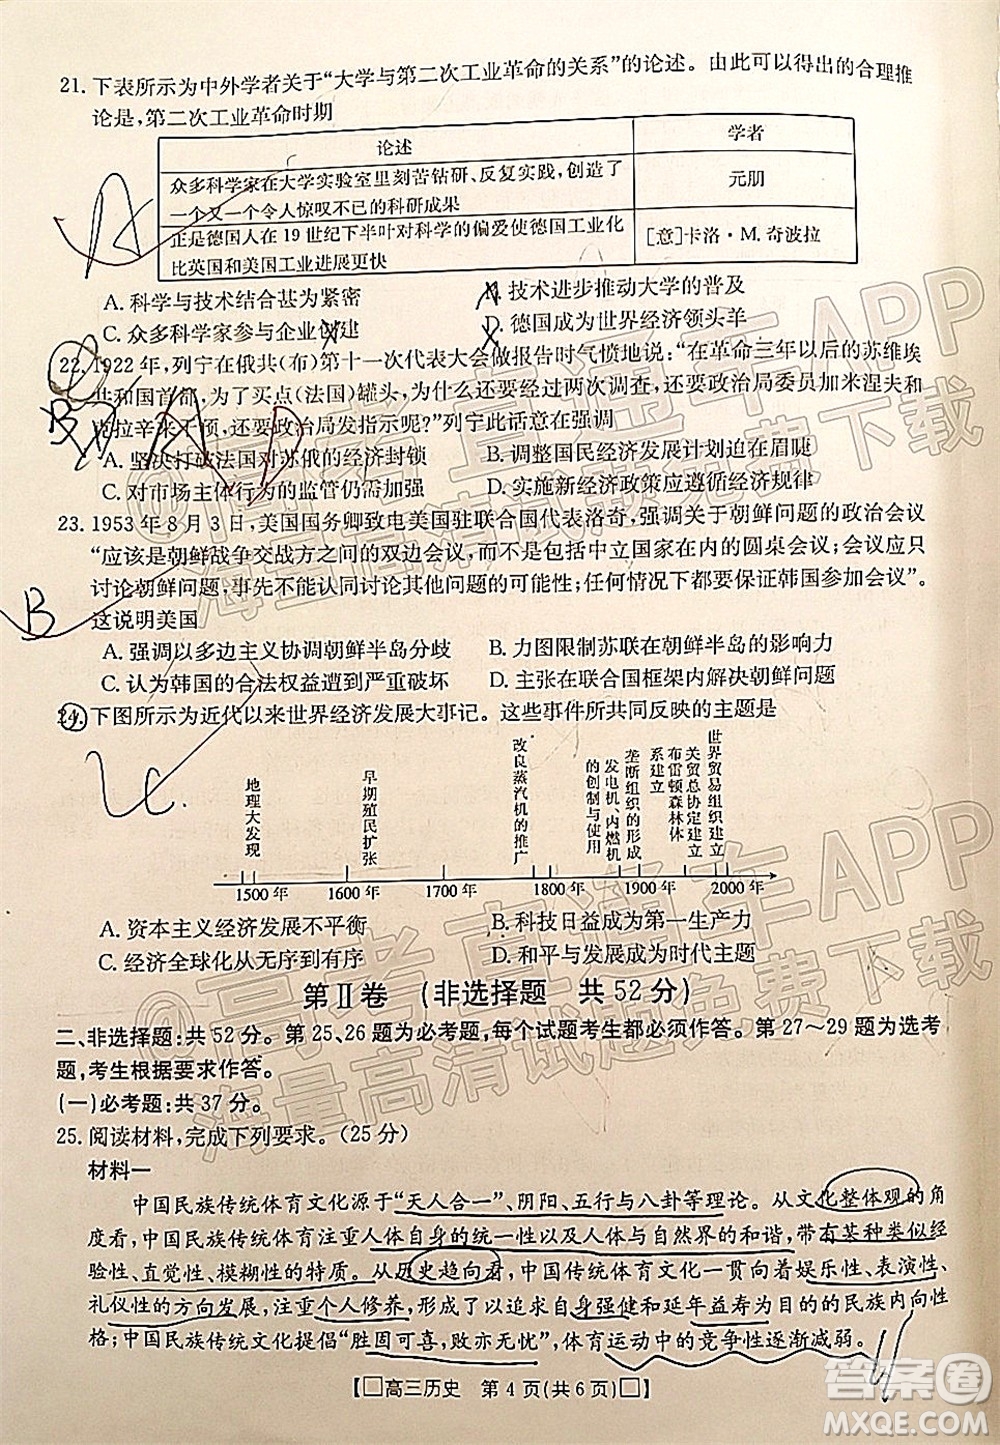 21. 下表所示为中外学者关于“大学与第二次工业革命的关系”的论述。由此可以得出的合理推
论是,第二次工业革命时期
论述 学者
众多科学家在大学实验室里刻苦钻研、反复实践,创造了
一个又一个令人惊叹不已的科研成果 元朋
正是德国人在 19 世纪下半叶对科学的偏爱使德国工业化
比英国和美国工业进展更快 [意]卡洛·M. 奇波拉
A
A. 科学与技术结合甚为紧密 B. 技术进步推动大学的普及
C. 众多科学家参与企业创建 D. 德国成为世界经济领头羊
22. 1922 年,列宁在俄共(布)第十一次代表大会做报告时气愤地说:“在革命三年以后的苏维埃
共和国首都,为了买点(法国)罐头,为什么还要经过两次调查,还要政治局委员加米涅夫和
克拉辛来干预,还要政治局发指示呢?”列宁此话意在强调
B A D
A. 坚决打破法国对苏俄的经济封锁 B. 调整国民经济发展计划迫在眉睫
C. 对市场主体行为的监管仍需加强 D. 实施新经济政策应遵循经济规律
23. 1953 年 8 月 3 日,美国国务卿致电美国驻联合国代表洛奇,强调关于朝鲜问题的政治会议
“应该是朝鲜战争交战方之间的双边会议,而不是包括中立国家在内的圆桌会议;会议应只
讨论朝鲜问题,事先不能认同讨论其他问题的可能性;任何情况下都要保证韩国参加会议”。
这说明美国
B
A. 强调以多边主义协调朝鲜半岛分歧 B. 力图限制苏联在朝鲜半岛的影响力
C. 认为韩国的合法权益遭到严重破坏 D. 主张在联合国框架内解决朝鲜问题
24. 下图所示为近代以来世界经济发展大事记。这些事件所共同反映的主题是
C
地理大发现
早期殖民扩张
改良蒸汽机的推广
发电机、内燃机的创制与使用
垄断组织的形成
布雷顿森林体系建立
关贸总协定建立
世界贸易组织建立
1500 年 1600 年 1700 年 1800 年 1900 年 2000 年
A. 资本主义经济发展不平衡 B. 科技日益成为第一生产力
C. 经济全球化从无序到有序 D. 和平与发展成为时代主题
第Ⅱ卷 (非选择题 共 52 分)
二、非选择题:共 52 分。第 25、26 题为必考题,每个试题考生都必须作答。第 27～29 题为选考
题,考生根据要求作答。
(一)必考题:共 37 分。
25. 阅读材料,完成下列要求。(25 分)
材料一
中国民族传统体育文化源于“天人合一”、阴阳、五行与八卦等理论。从文化整体观的角
度看,中国民族传统体育注重人体自身的统一性以及人体与自然世界的和谐,带有某种类似经
验性、直觉性、模糊性的特质。从历史趋向看,中国传统体育文化一贯向着娱乐性、表演性、
礼仪性的方向发展,注重个人修养,形成了以自身强健和延年益寿为目的的民族内向性
格;中国民族传统文化提倡“胜固可喜,败亦无忧”,体育运动中的竞争性逐渐减弱。
【□高三历史 第 4 页(共 6 页)□】
@高考直通车APP
海量高清试题免费下载
@高考直通车APP
海量高清试题免费下载
答案圈
MXQE.COM